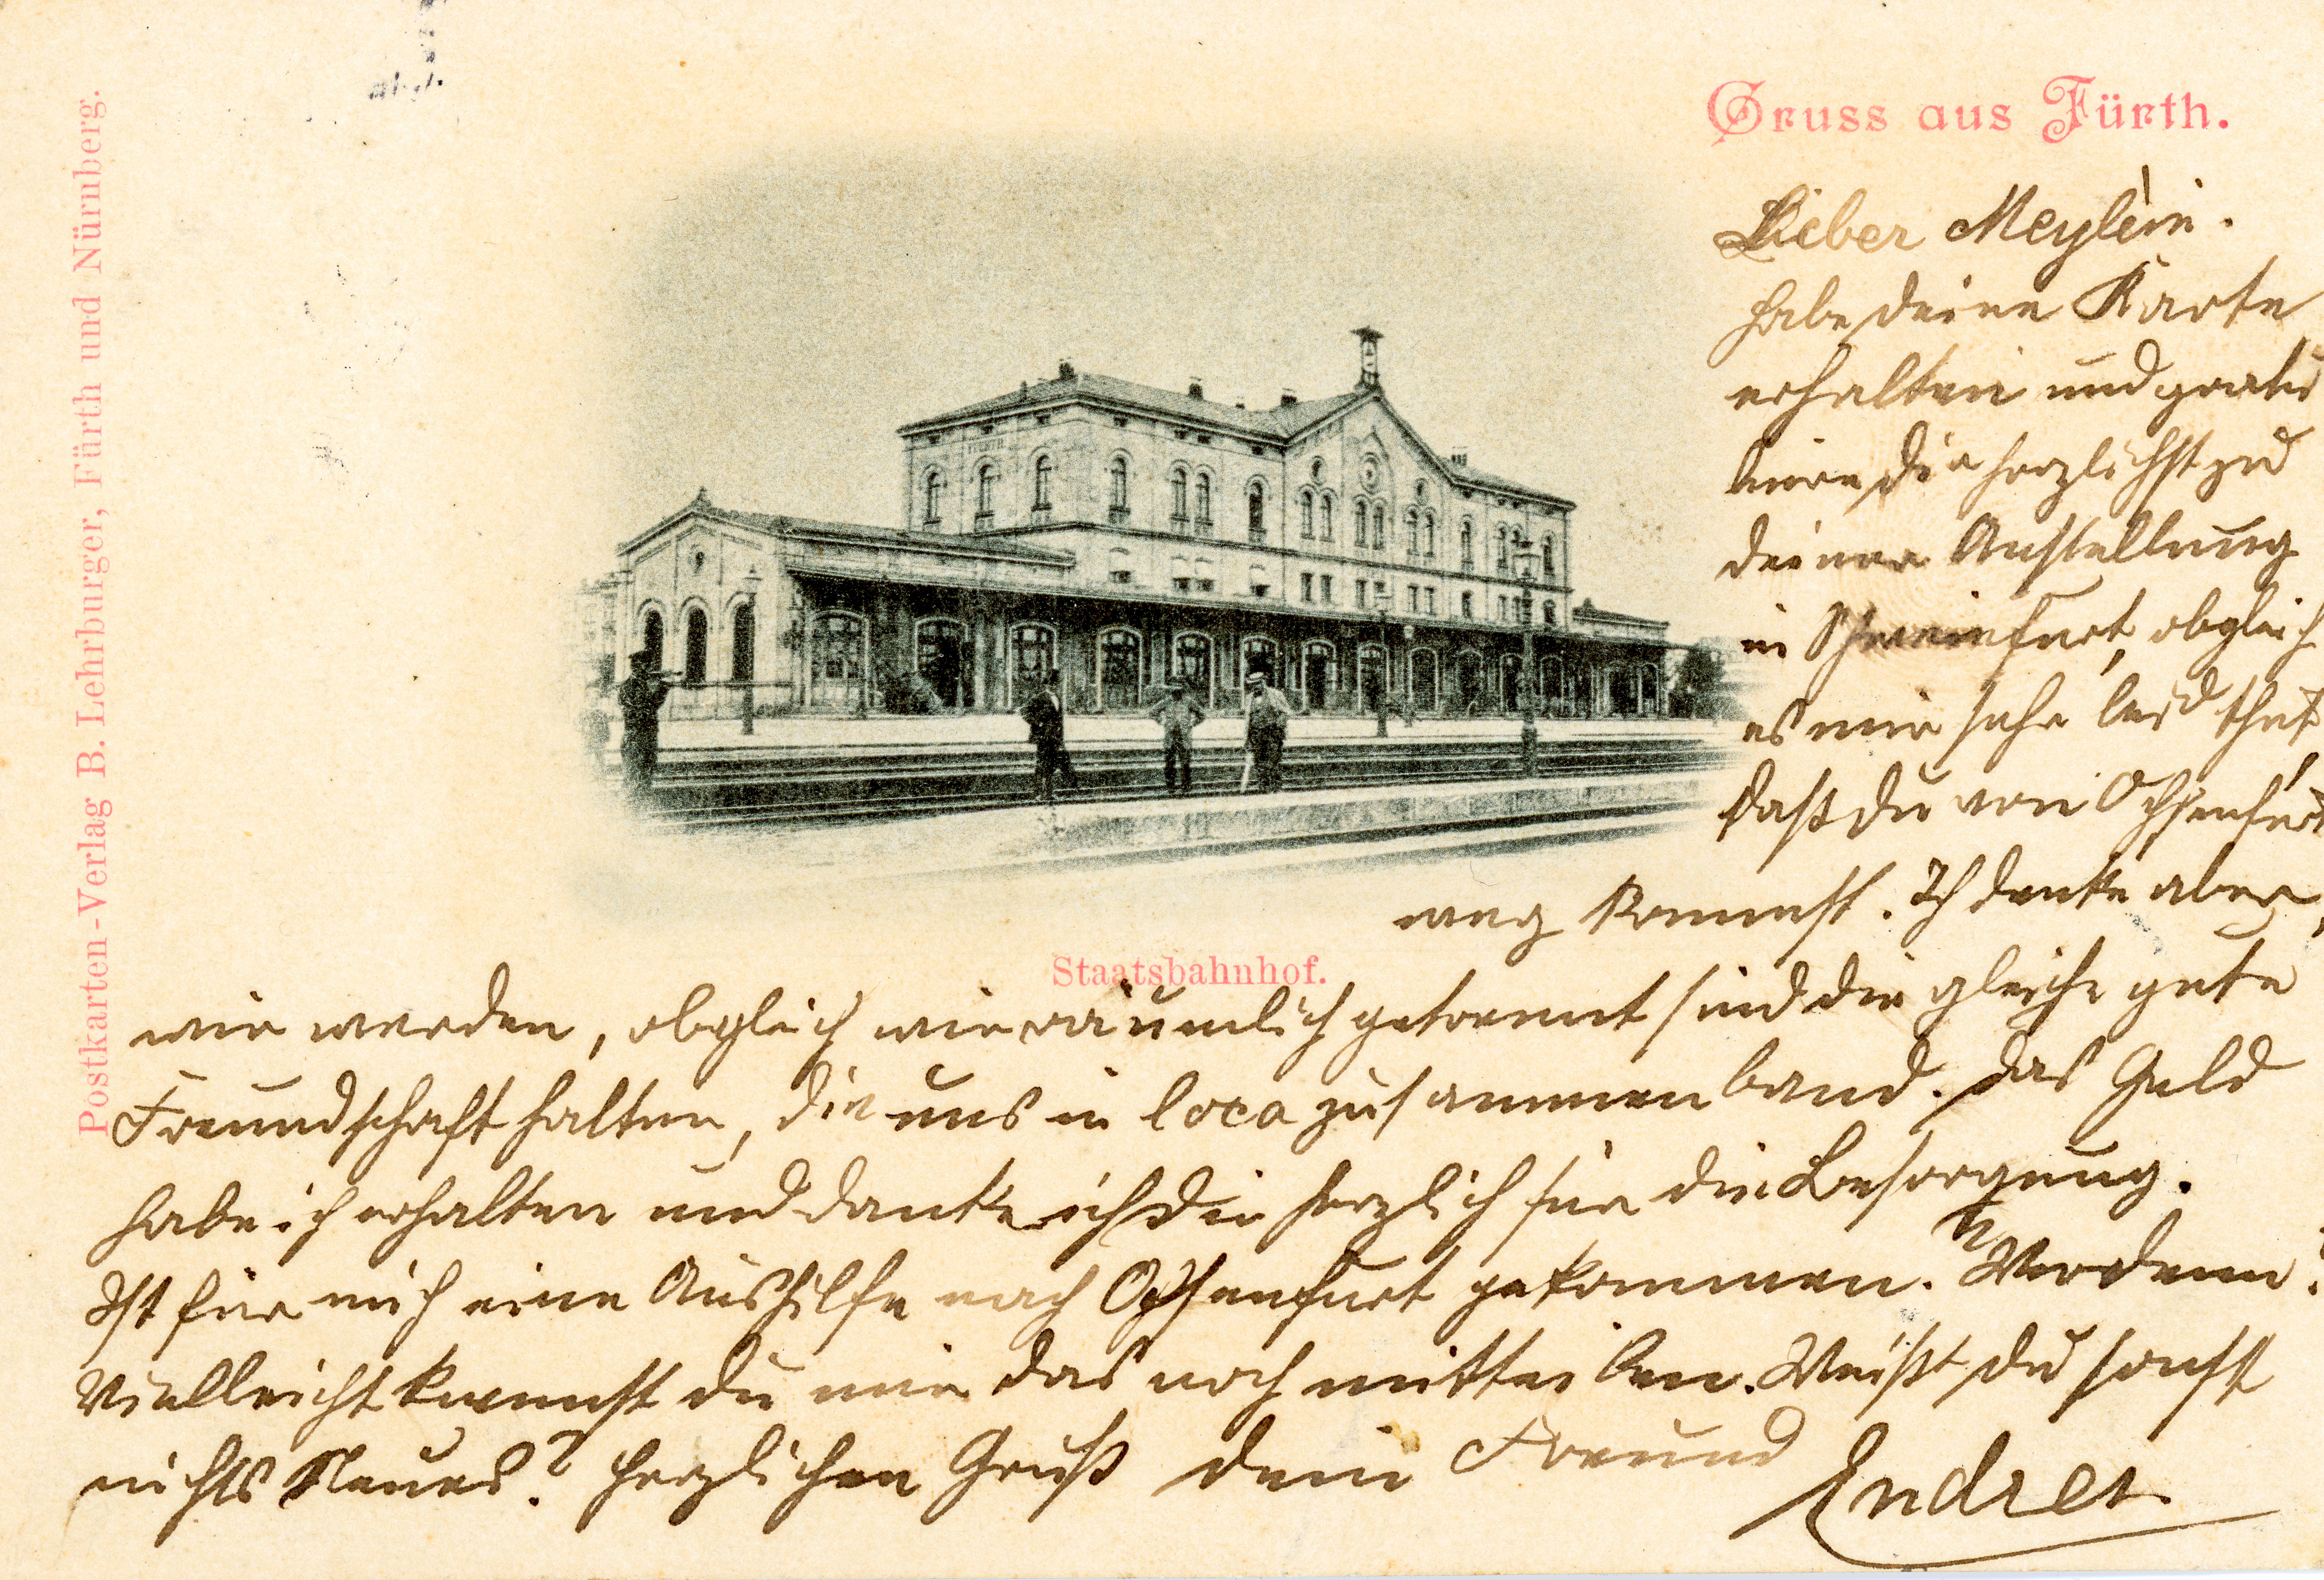 Gruss aus Fürth.
Postkarten-Verlag B. Lehrburger, Fürth und Nürnberg.
Staatsbahnhof.
FÜRTH
Lieber Meylein.
habe deine Karte
erhalten und gratu
liere dir herzlichst zu
deiner Anstellung
in Schweinfurt, obgleich
es mir sehr leid thut,
daß du von Ochsenfurt
weg kommst. Ich denke aber,
wir werden, obgleich wir räumlich getrennt sind die gleiche gute
Freundschaft halten, die uns in loco zusammen band. Das Geld
habe ich erhalten und danke ich dir herzlich für die Besorgung.
Ist für mich eine Aushilfe nach Ochsenfurt gekommen. Wer denn?
Vielleicht kannst du mir das noch mitteilen. Weißt du sonst
nichts Neues? Herzlichen Gruß dein Freund
Endres